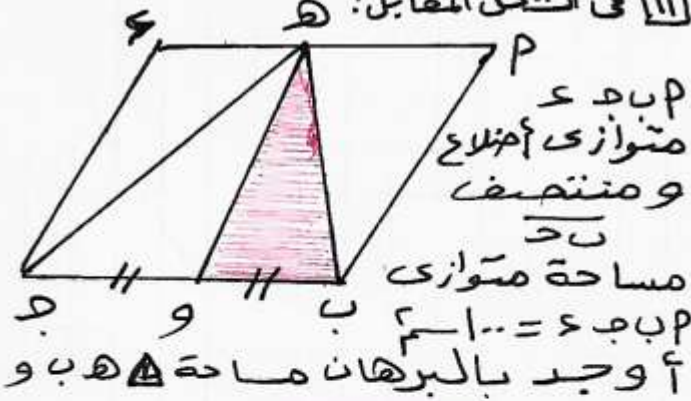 [11] فى الشكل المقابل:
ء هـ م
م ب جـ ء
متوازى أضلاع
و منتصف
ب جـ
مساحة متوازى
جـ و ب
م ب جـ ء = ١٠٠ سم٢
أوجد بالبرهان مساحة △ هـ ب و